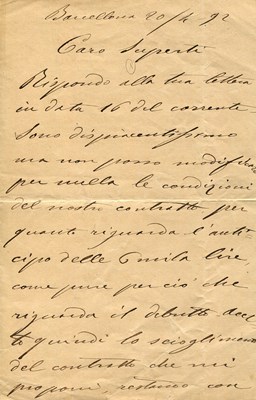 Barcellona 20/4 92
Caro Superti
Rispondo alla tua lettera
in data 16 del corrente
Sono dispiacentissimo
ma non posso modificare
per nulla le condizioni
del nostro contratto per
quanto riguarda l'anti
cipo delle 6 mila lire,
come pure per ciò che
riguarda il debutto
quindi lo scioglimento
del contratto che mi
proponi, restano con